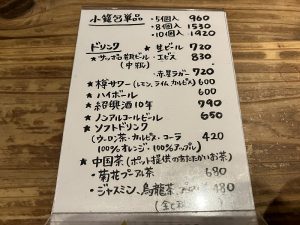 小籠包単品 ・5個入 960
・8個入 1530
・10個入 1920
ドリンク ★ 生ビール 720
★ サッポロ ビール・エビス 830
(中瓶) ・赤星ラガー 720
★ 樽サワー(レモン,ライム,カルピス) 600
★ ハイボール 600
★ 紹興酒10年 990
★ ノンアルコールビール 650
★ ソフトドリンク
(ウーロン茶・カルピス・コーラ 420
100%オレンジ・100%アップル)
★ 中国茶(ポット提供のあたたかいお茶)
・菊花プーアル茶 680
・ジャスミン、烏龍茶 480